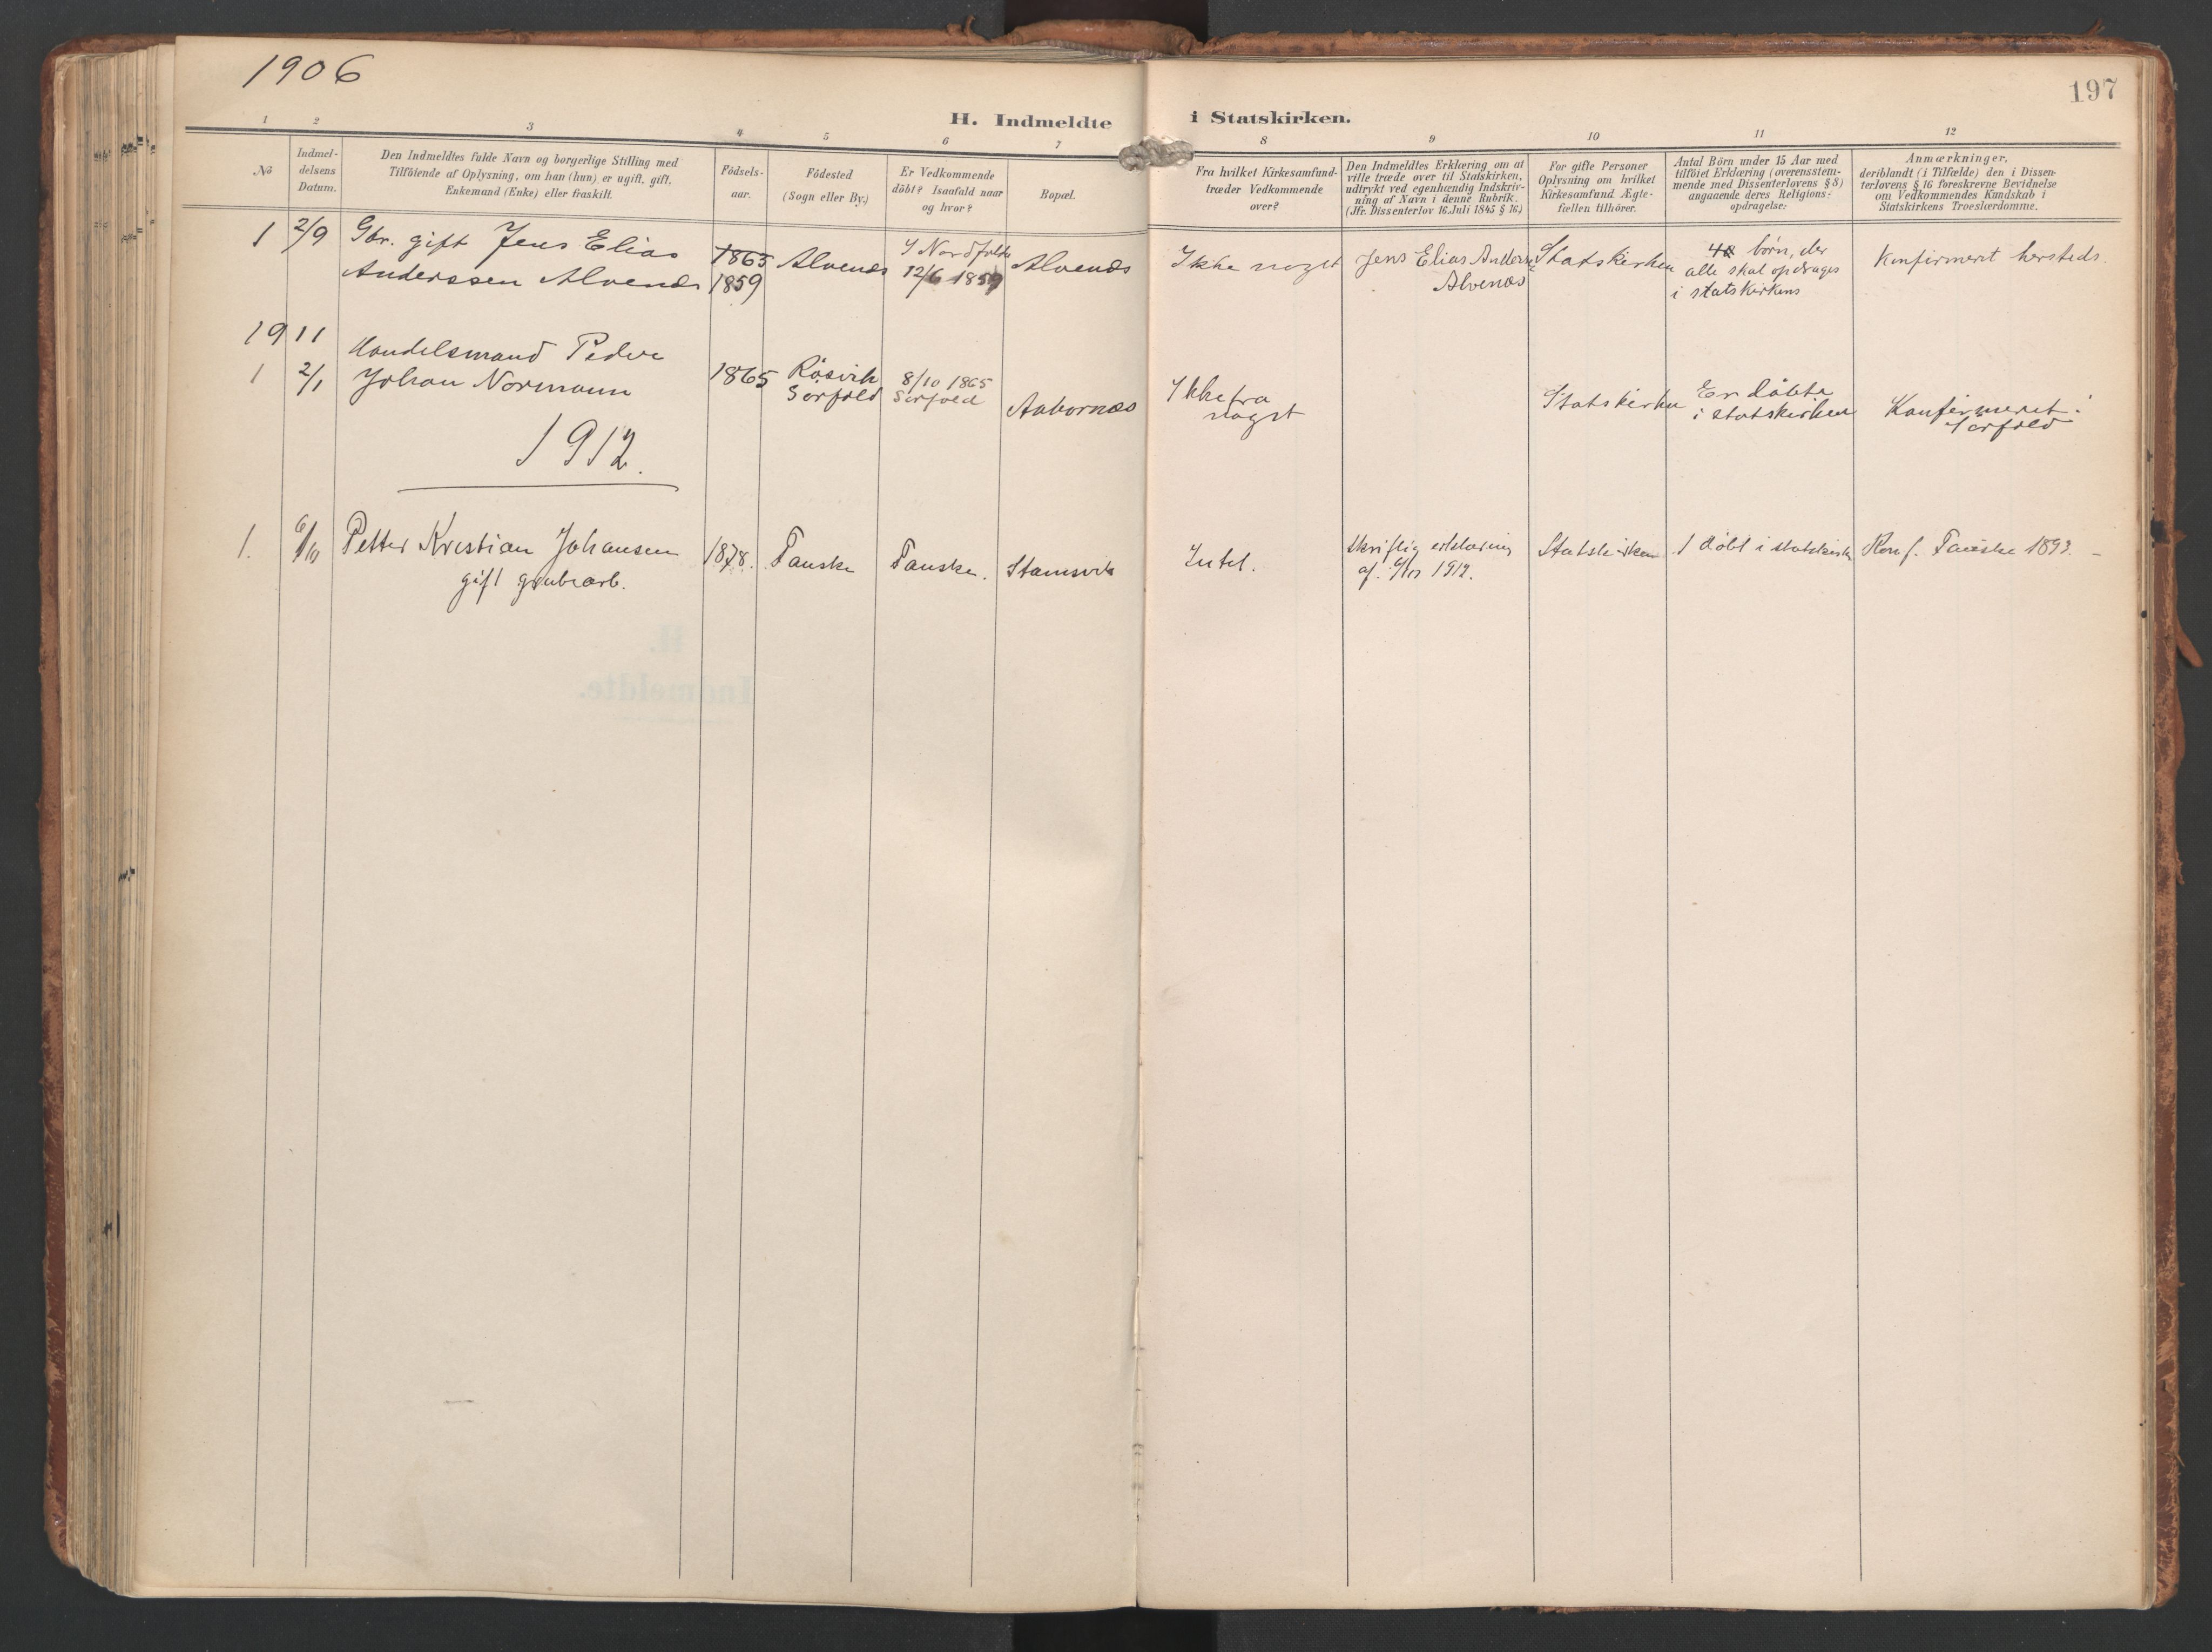 1906
197
H. Indmeldte i Statskirken.
1 2 3 4 5 6 7 8 9 10 11 12
No
Indmel-
delsens
Datum.
Den Indmeldtes fulde Navn og borgerlige Stilling med
Tilföiende af Oplysning, om han (hun) er ugift, gift,
Enkemand (Enke) eller fraskilt.
Födsels-
aar.
Födested
(Sogn eller By.)
Er Vedkommende
döbt? Isaafald naar
og hvor?
Bopæl.
Fra hvilket Kirkesamfund
træder Vedkommende
over?
Den Indmeldtes Erklæring om at
ville træde over til Statskirken,
udtrykt ved egenhændig Indskriv-
ning af Navn i denne Rubrik.
(Jfr. Dissenterlov 16. Juli 1845 § 16.)
For gifte Personer
Oplysning om hvilket
Kirkesamfund Ægte-
fællen tilhörer.
Antal Börn under 15 Aar med
tilföiet Erklæring (overensstem-
mende med Dissenterlovens § 8)
angaaende deres Religions-
opdragelse:
Anmærkninger,
deriblandt (i Tilfælde) den i Dissen-
terlovens § 16 foreskrevne Bevidnelse
om Vedkommendes Kundskab i
Statskirkens Troeslærdomme.
1
2/9
Gbr. gift Jens Elias
Anderssen Alvenes
1863
1859
Alvenæs
I Nordfolden
12/6 1859
Alvenæs
Ikke noget
Jens Elias Anders
Alvenæs
Statskirken
børn, der
alle skal opdrages
i statskirkens
Konfirmeret hersteds.
1911
1
2/1
Handelsmand Peder
Johan Normann
1865
Røsvik
Sørfold
8/10 1865
Sørfold
Aabornæs
Ikke fra
noget
Statskirken
Er døbte
i statskirken
Konfirmeret i
Sørfold
1912.
1.
6/10
Petter Kristian Johansen
gift grubearb.
1878.
Fauske
Fauske.
Stamsvik
Intet.
Skriftlig erklæring
af 6/10 1912.
Statskirken
1 døbt i statskirken
Konf. Fauske 1893. -